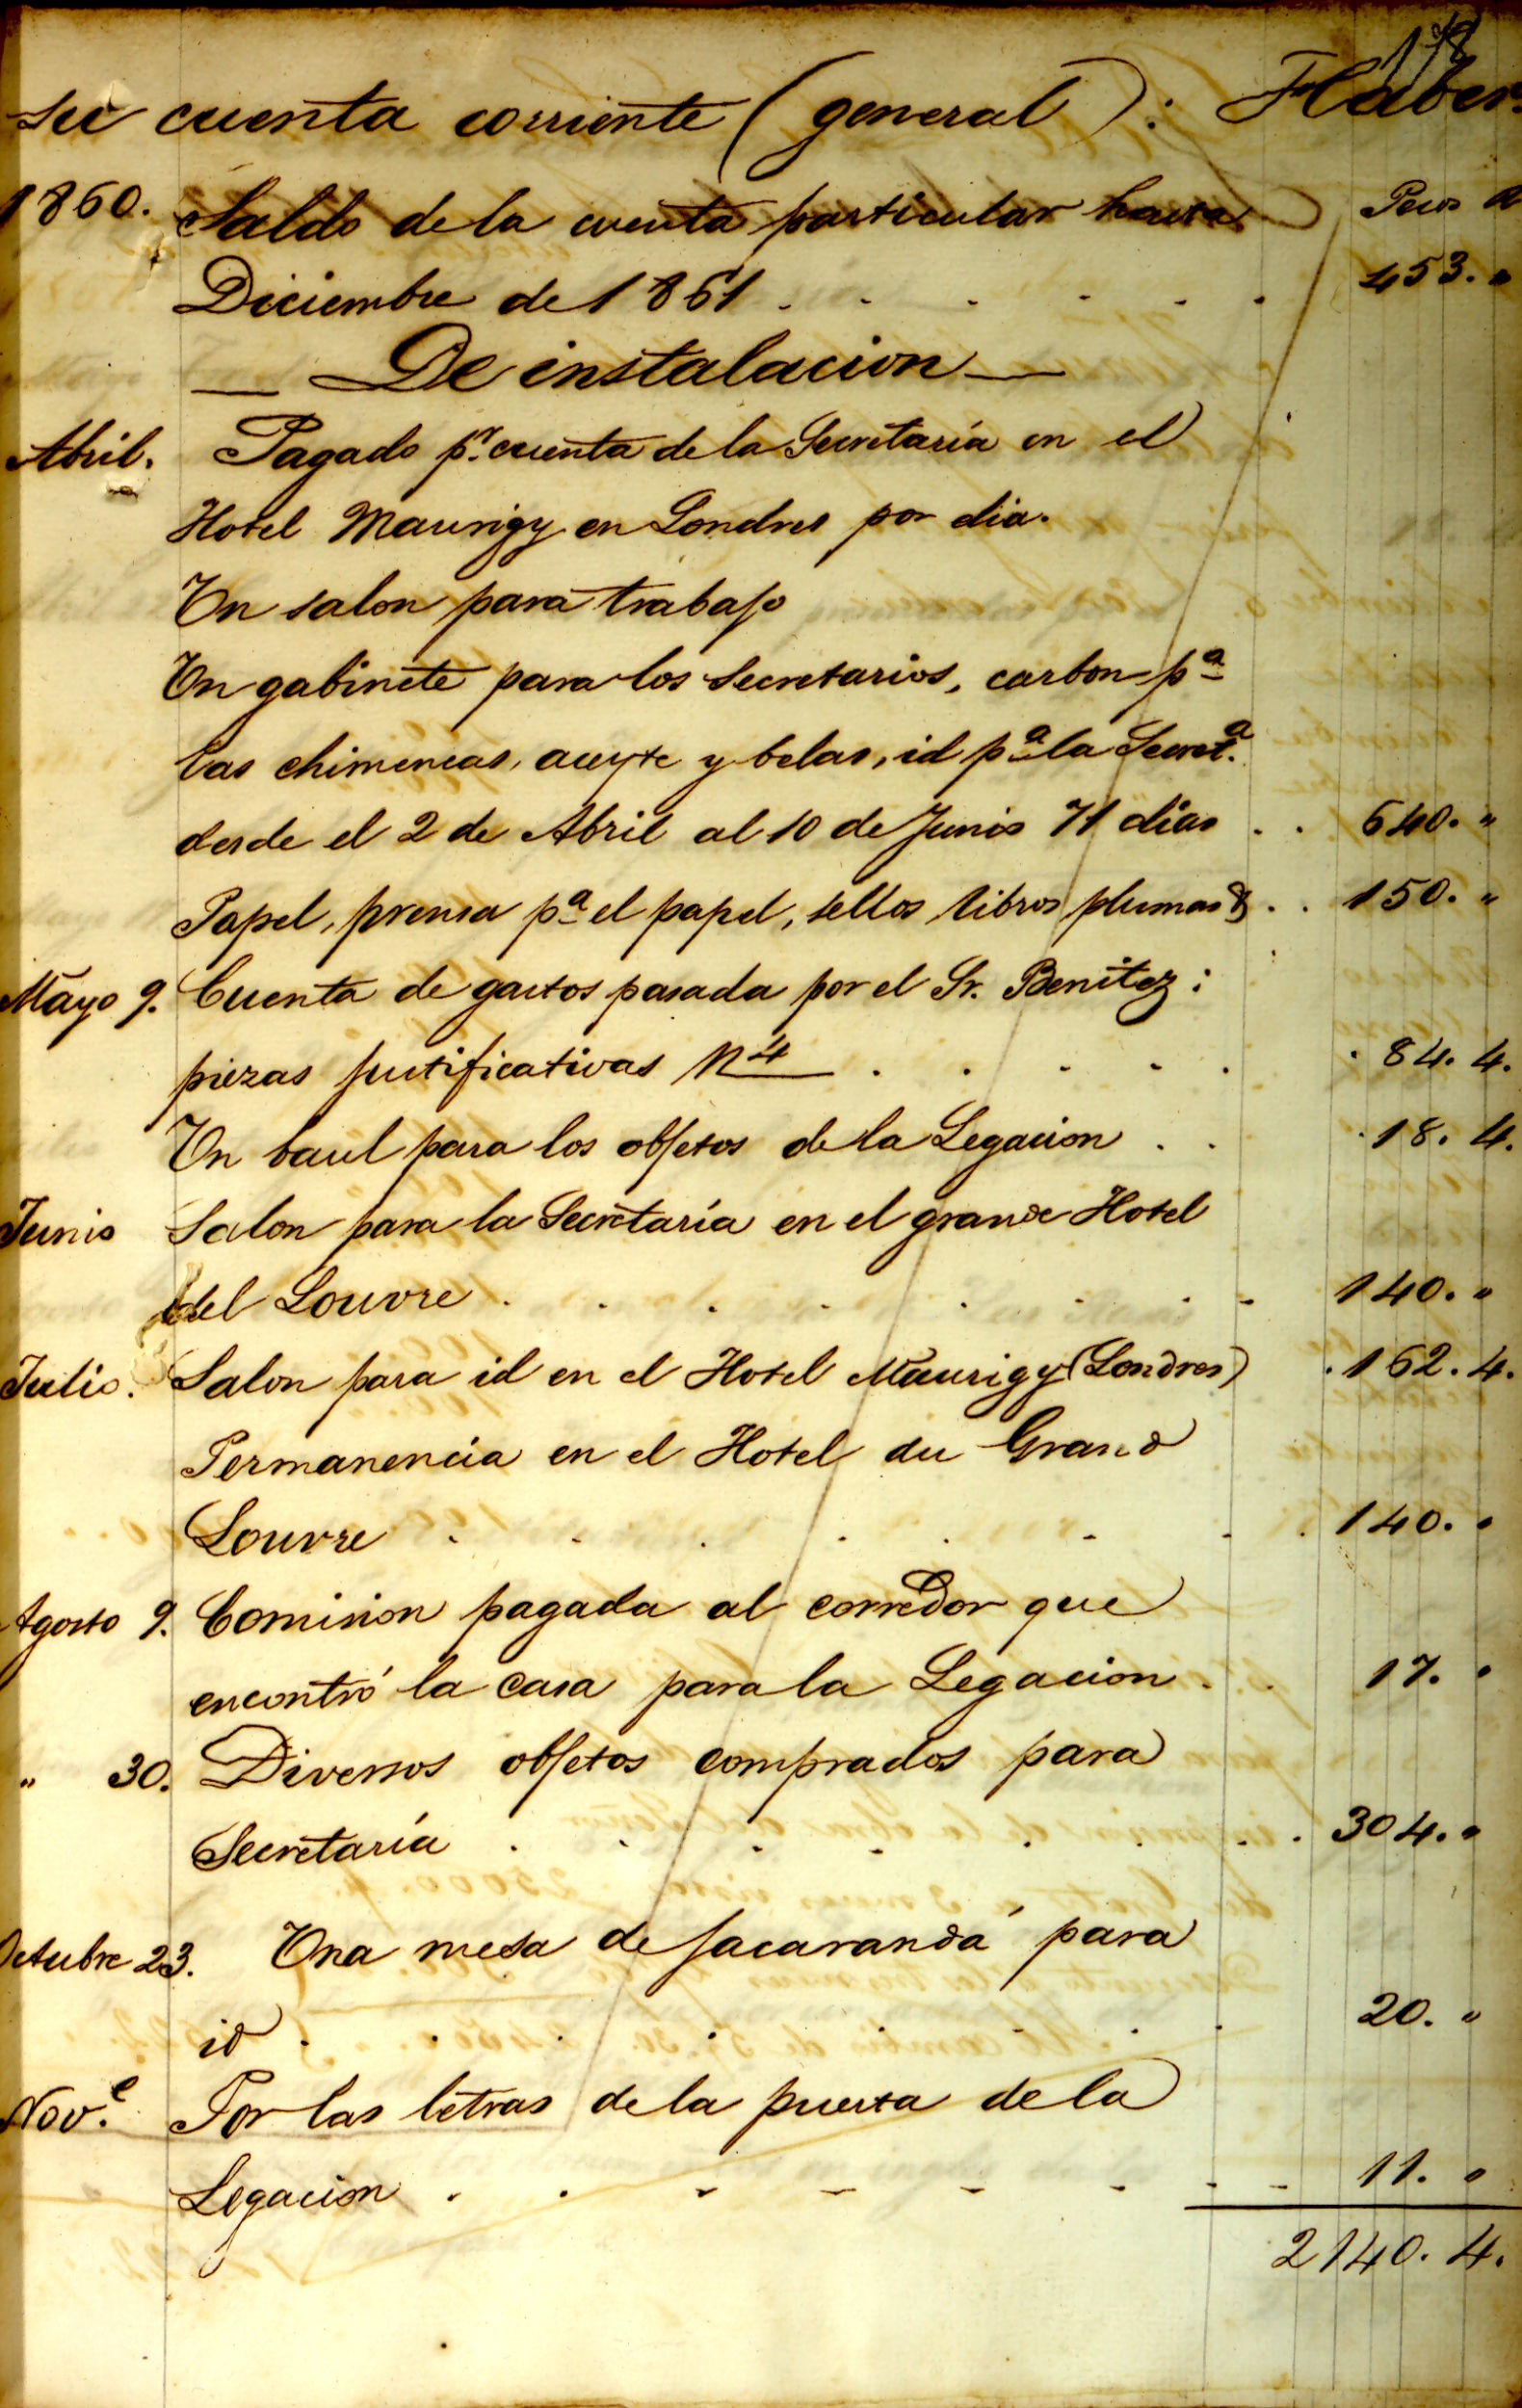 su cuenta corriente (general): Haber.
1860. Saldo de la cuenta particular hasta Pesos
Diciembre de 1861 . . . . . 453. "
— De instalacion —
Abril. Pagado pr. cuenta de la Secretaría en el
Hotel Maurigy en Londres por dia.
Un salon para trabajo
Un gabinete para los Secretarios, carbon pa
las chimeneas, aceyte y belas, id pa la Secreta.
desde el 2 de Abril al 10 de Junio 71 dias . . 640. "
Papel, prensa pa el papel, sellos libros plumas & . . 150. "
Mayo 9. Cuenta de gastos pasada por el Sr. Benitez:
piezas justificativas N 4 . . . . . 84. 4.
Un baul para los objetos de la Legacion . . 18. 4.
Junio Salon para la Secretaría en el grande Hotel
del Louvre . . . . . . . . 140. "
Julio. Salon para id en el Hotel Maurigy (Londres) . 162. 4.
Permanencia en el Hotel du Grand
Louvre . . . . . . . . 140. "
Agosto 9. Comision pagada al corredor que
encontró la casa para la Legacion . . 17. "
" 30. Diversos objetos comprados para
Secretaría . . . . . . . 304. "
Octubre 23. Una mesa de jacarandá para
id . . . . . . . 20. "
Nov.e Por las letras de la puerta de la
Legacion . . . . . . . . 11. "
2140. 4.